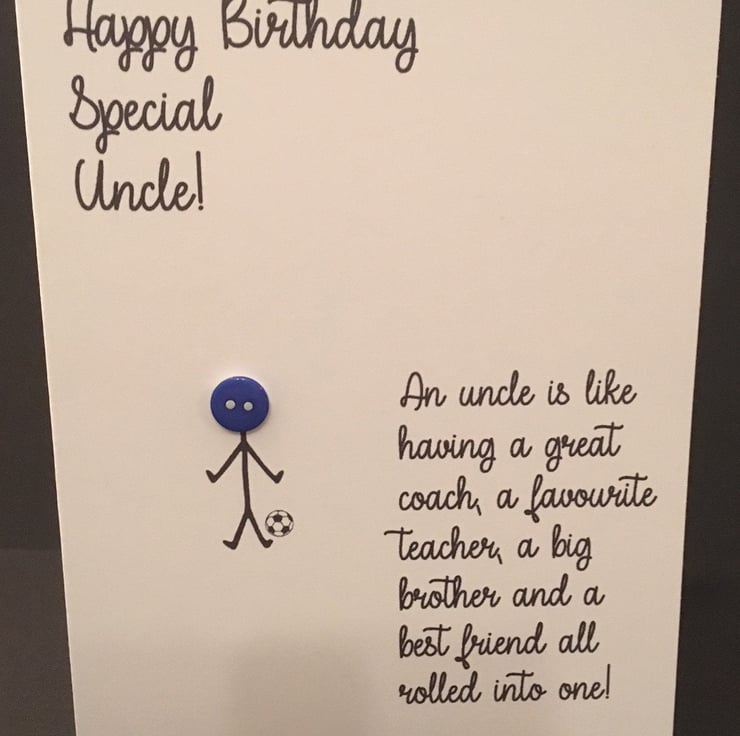 Happy Birthday
Special
Uncle!
An uncle is like
having a great
coach, a favourite
teacher, a big
brother and a
best friend all
rolled into one!